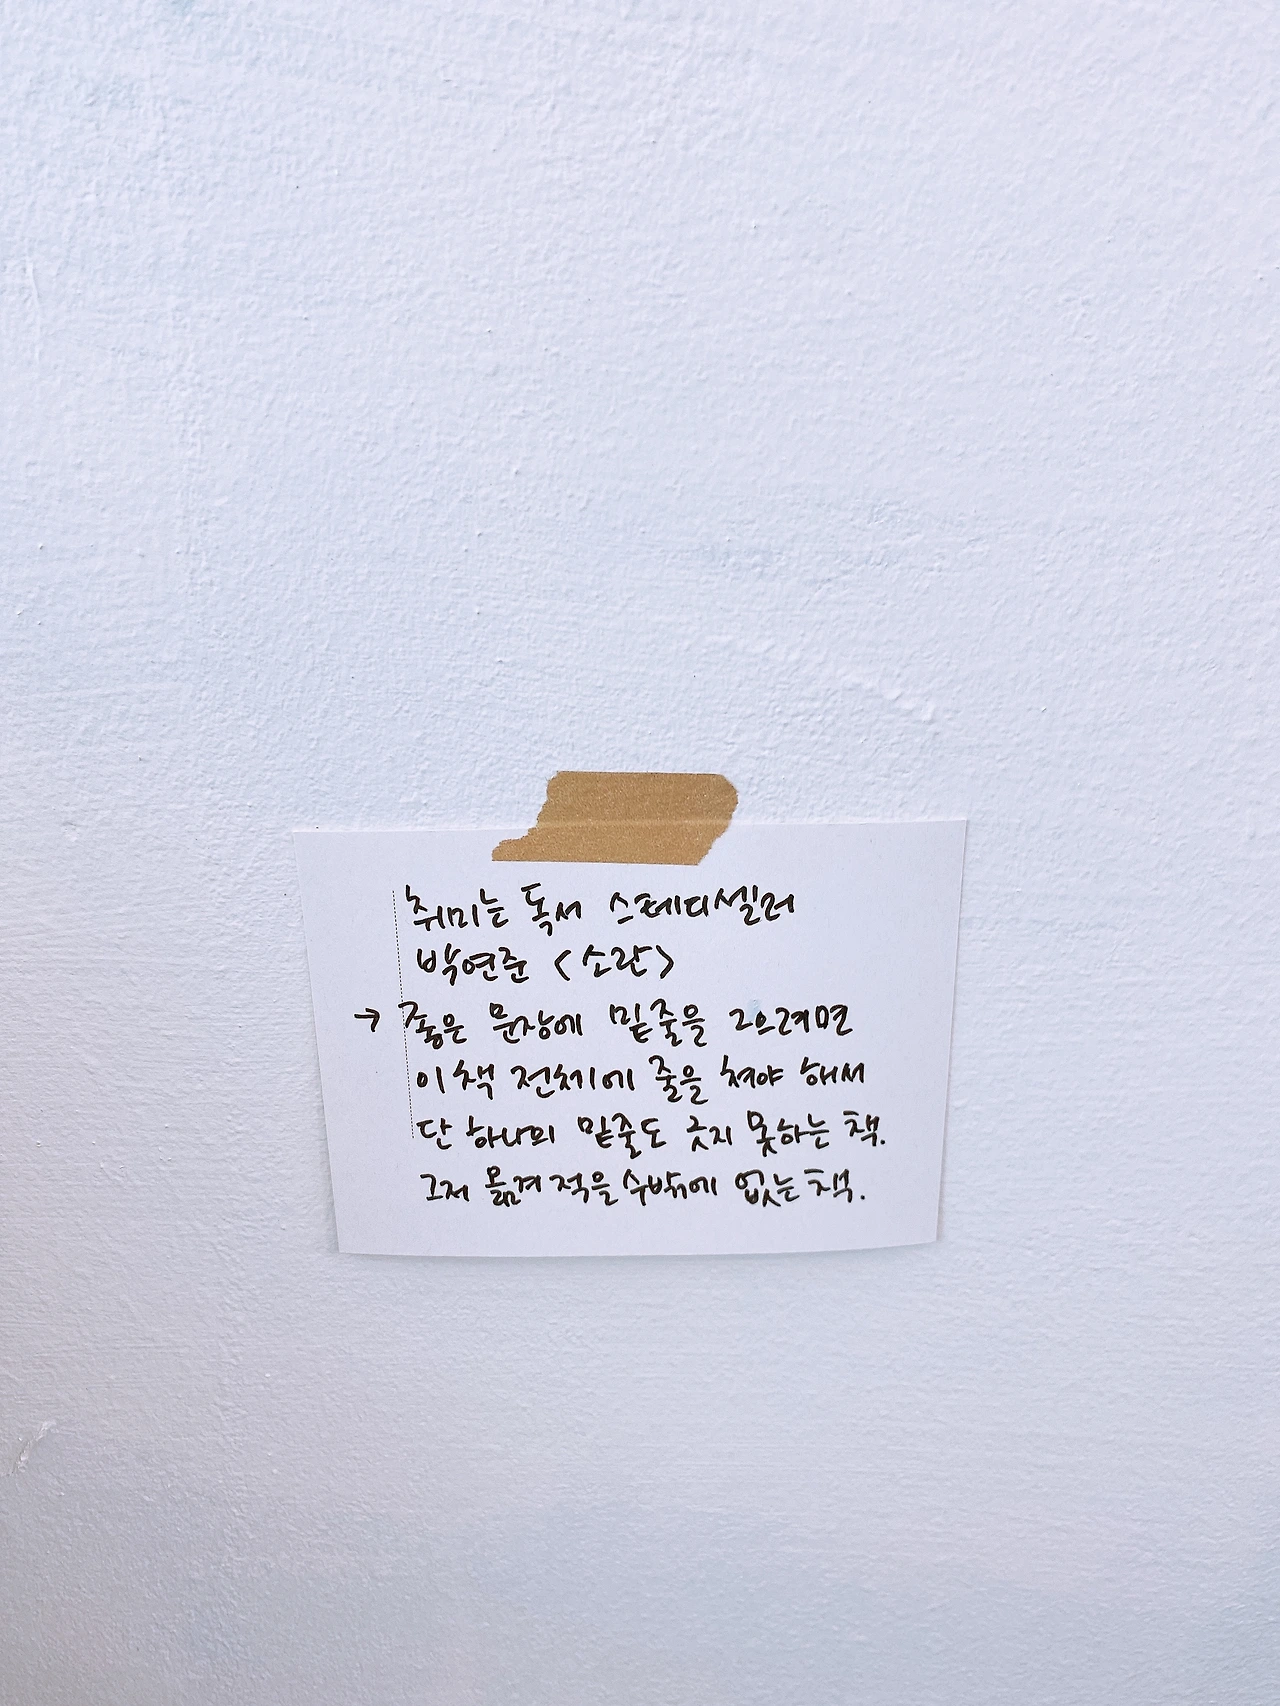 취미는 독서 스테디셀러
박연준 <소란>
→ 좋은 문장에 밑줄을 그으려면
이 책 전체에 줄을 쳐야 해서
단 하나의 밑줄도 긋지 못하는 책.
그저 옮겨 적을 수밖에 없는 책.